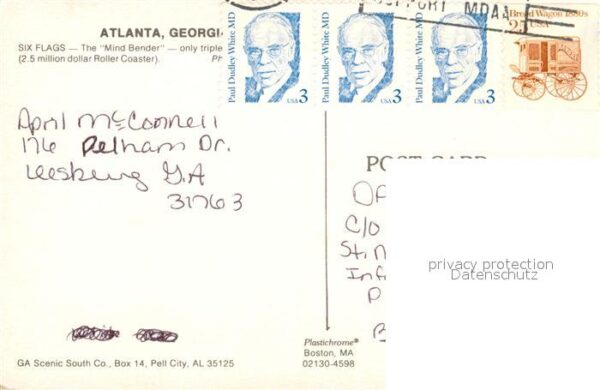 ATLANTA, GEORGI
SIX FLAGS — The "Mind Bender" — only triple
(2.5 million dollar Roller Coaster). Ph
Paul Dudley White MD
USA 3
Paul Dudley White MD
USA 3
Paul Dudley White MD
USA 3
PORT MDAA
Bread Wagon 1880s
25 USA
April McConnell
176 Pelham Dr.
Leesburg G.A
31763
POST CARD
C/O
St. M
Inf
P
B
privacy protection
Datenschutz
GA Scenic South Co., Box 14, Pell City, AL 35125
Plastichrome®
Boston, MA
02130-4598